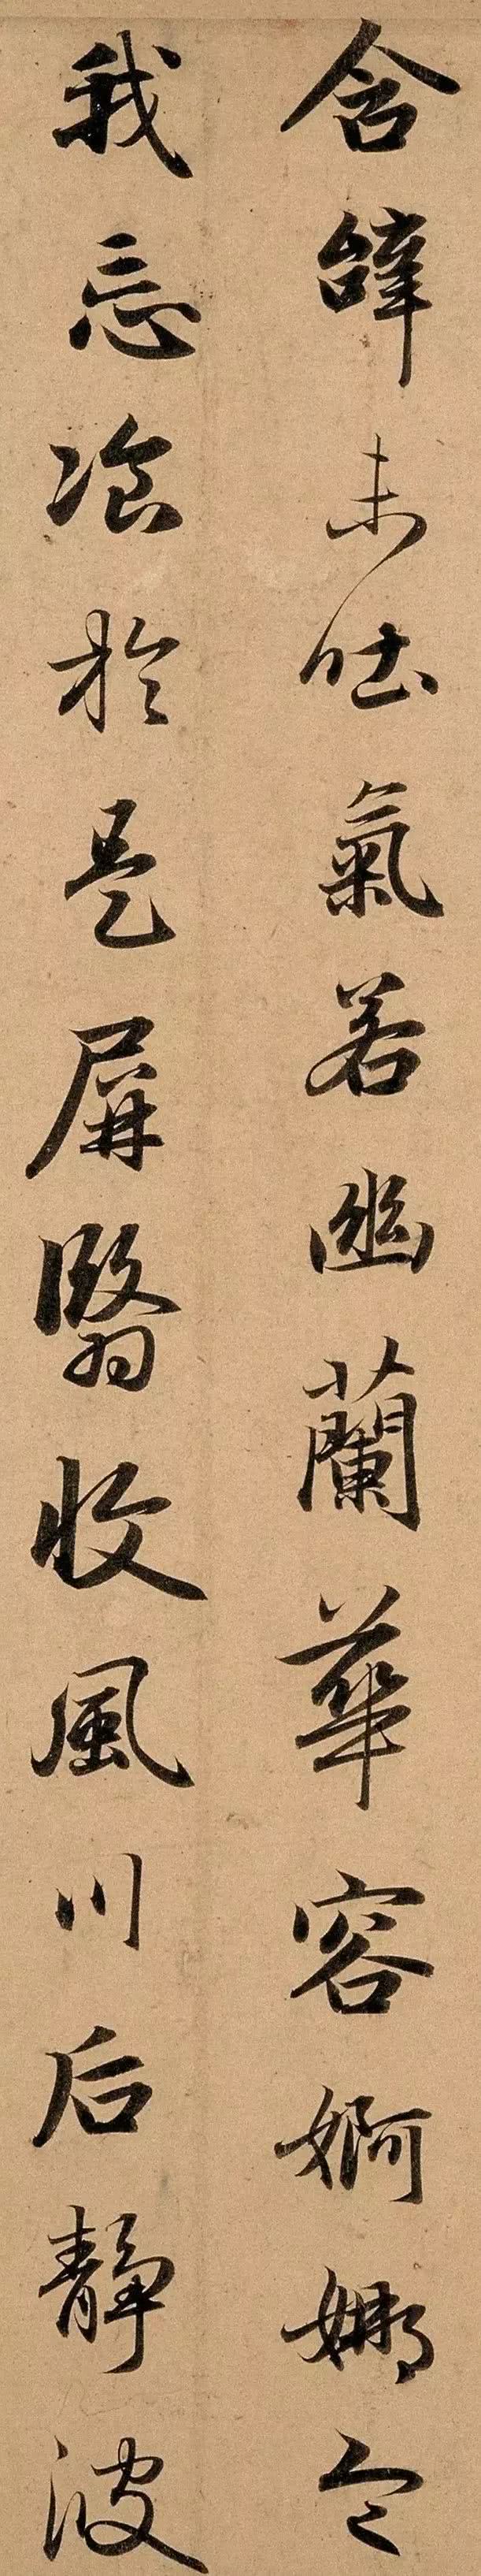 含辝未吐氣若幽蘭華容婀娜令
我忘飡於是屏翳收風川后靜波